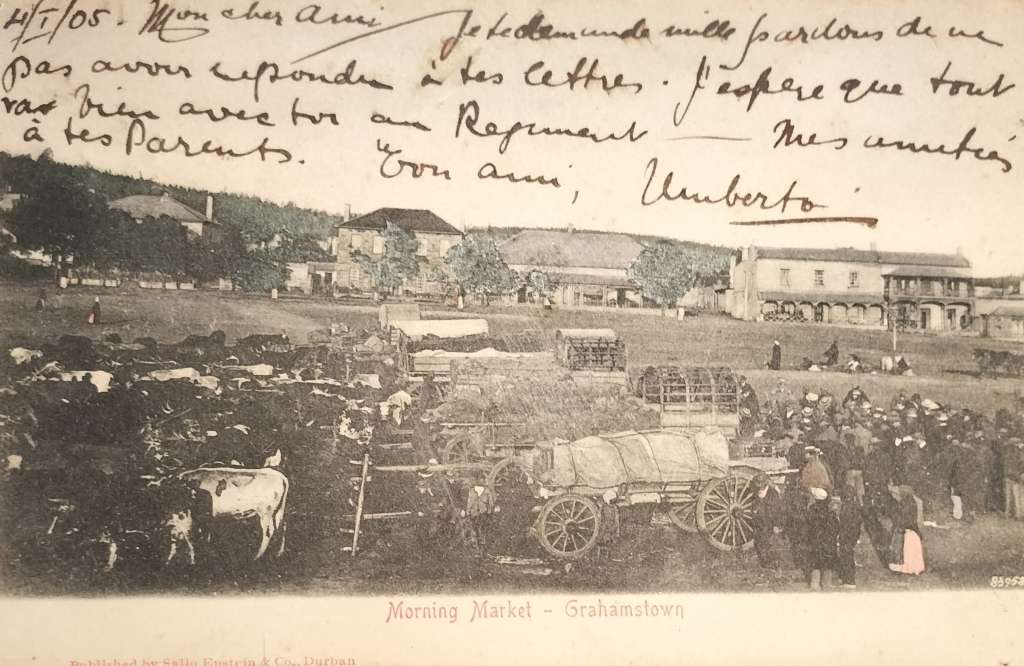 4/I/05. Mon cher Ami Je te demande mille pardons de ne
pas avoir repondu à tes lettres. J'espere que tout
va bien avec toi au Regiment — Mes amitiés
à tes Parents. Ton ami, Umberto
83958
Morning Market - Grahamstown
Published by Sallo Epstein & Co., Durban